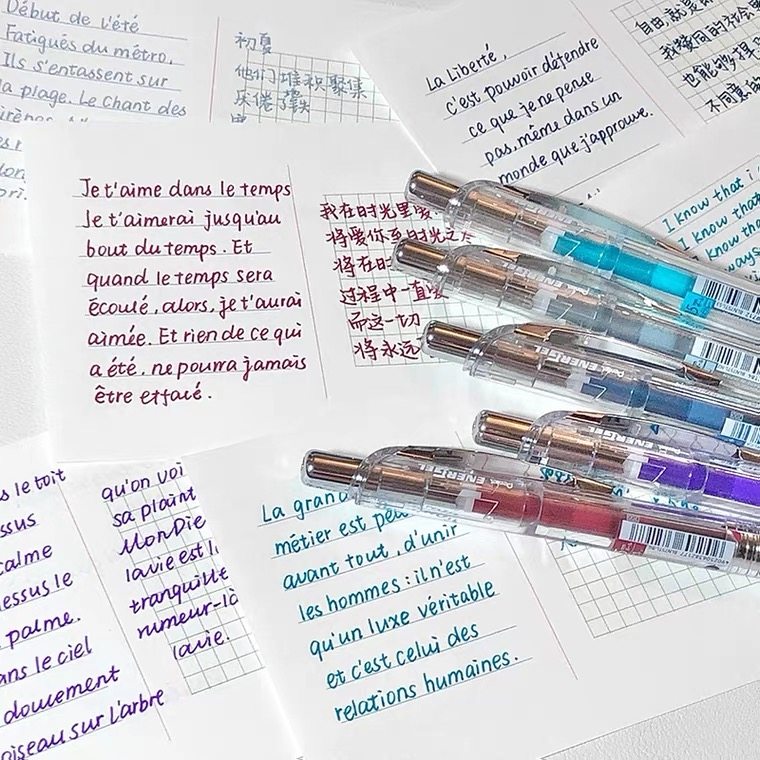 Début de l'été
Fatigués du métro,
Ils s'entassent sur
la plage. Le chant des
初夏
他们堆积聚集
厌倦了
La Liberté,
c'est pouvoir défendre
ce que je ne pense
pas, même dans un
monde que j'approuve.
自由,就是
我赞同的社会里
也能够捍
不同意的
I know that i
I know that
know tha
ways
Je t'aime dans le temps
Je t'aimerai jusqu'au
bout du temps. Et
quand le temps sera
écoulé, alors, je t'aurai
aimée. Et rien de ce qui
a été, ne pourra jamais
être effacé.
我在时光里爱
将爱你至时光之
将在时
过程中一直
而这一切
将永远
s le toit
ssus
calme
essus le
palme.
ans le ciel
doucement
oiseau sur l'arbre
qu'on voi
sa plaint
Mon Die
la vie est l
tranquille
rumeur-là
la vie.
La grand
métier est peu
avant tout, d'unir
les hommes: il n'est
qu'un luxe véritable
et c'est celui des
relations humaines.
ENERGEL
ENERGEL
ENERGEL
ENERGEL